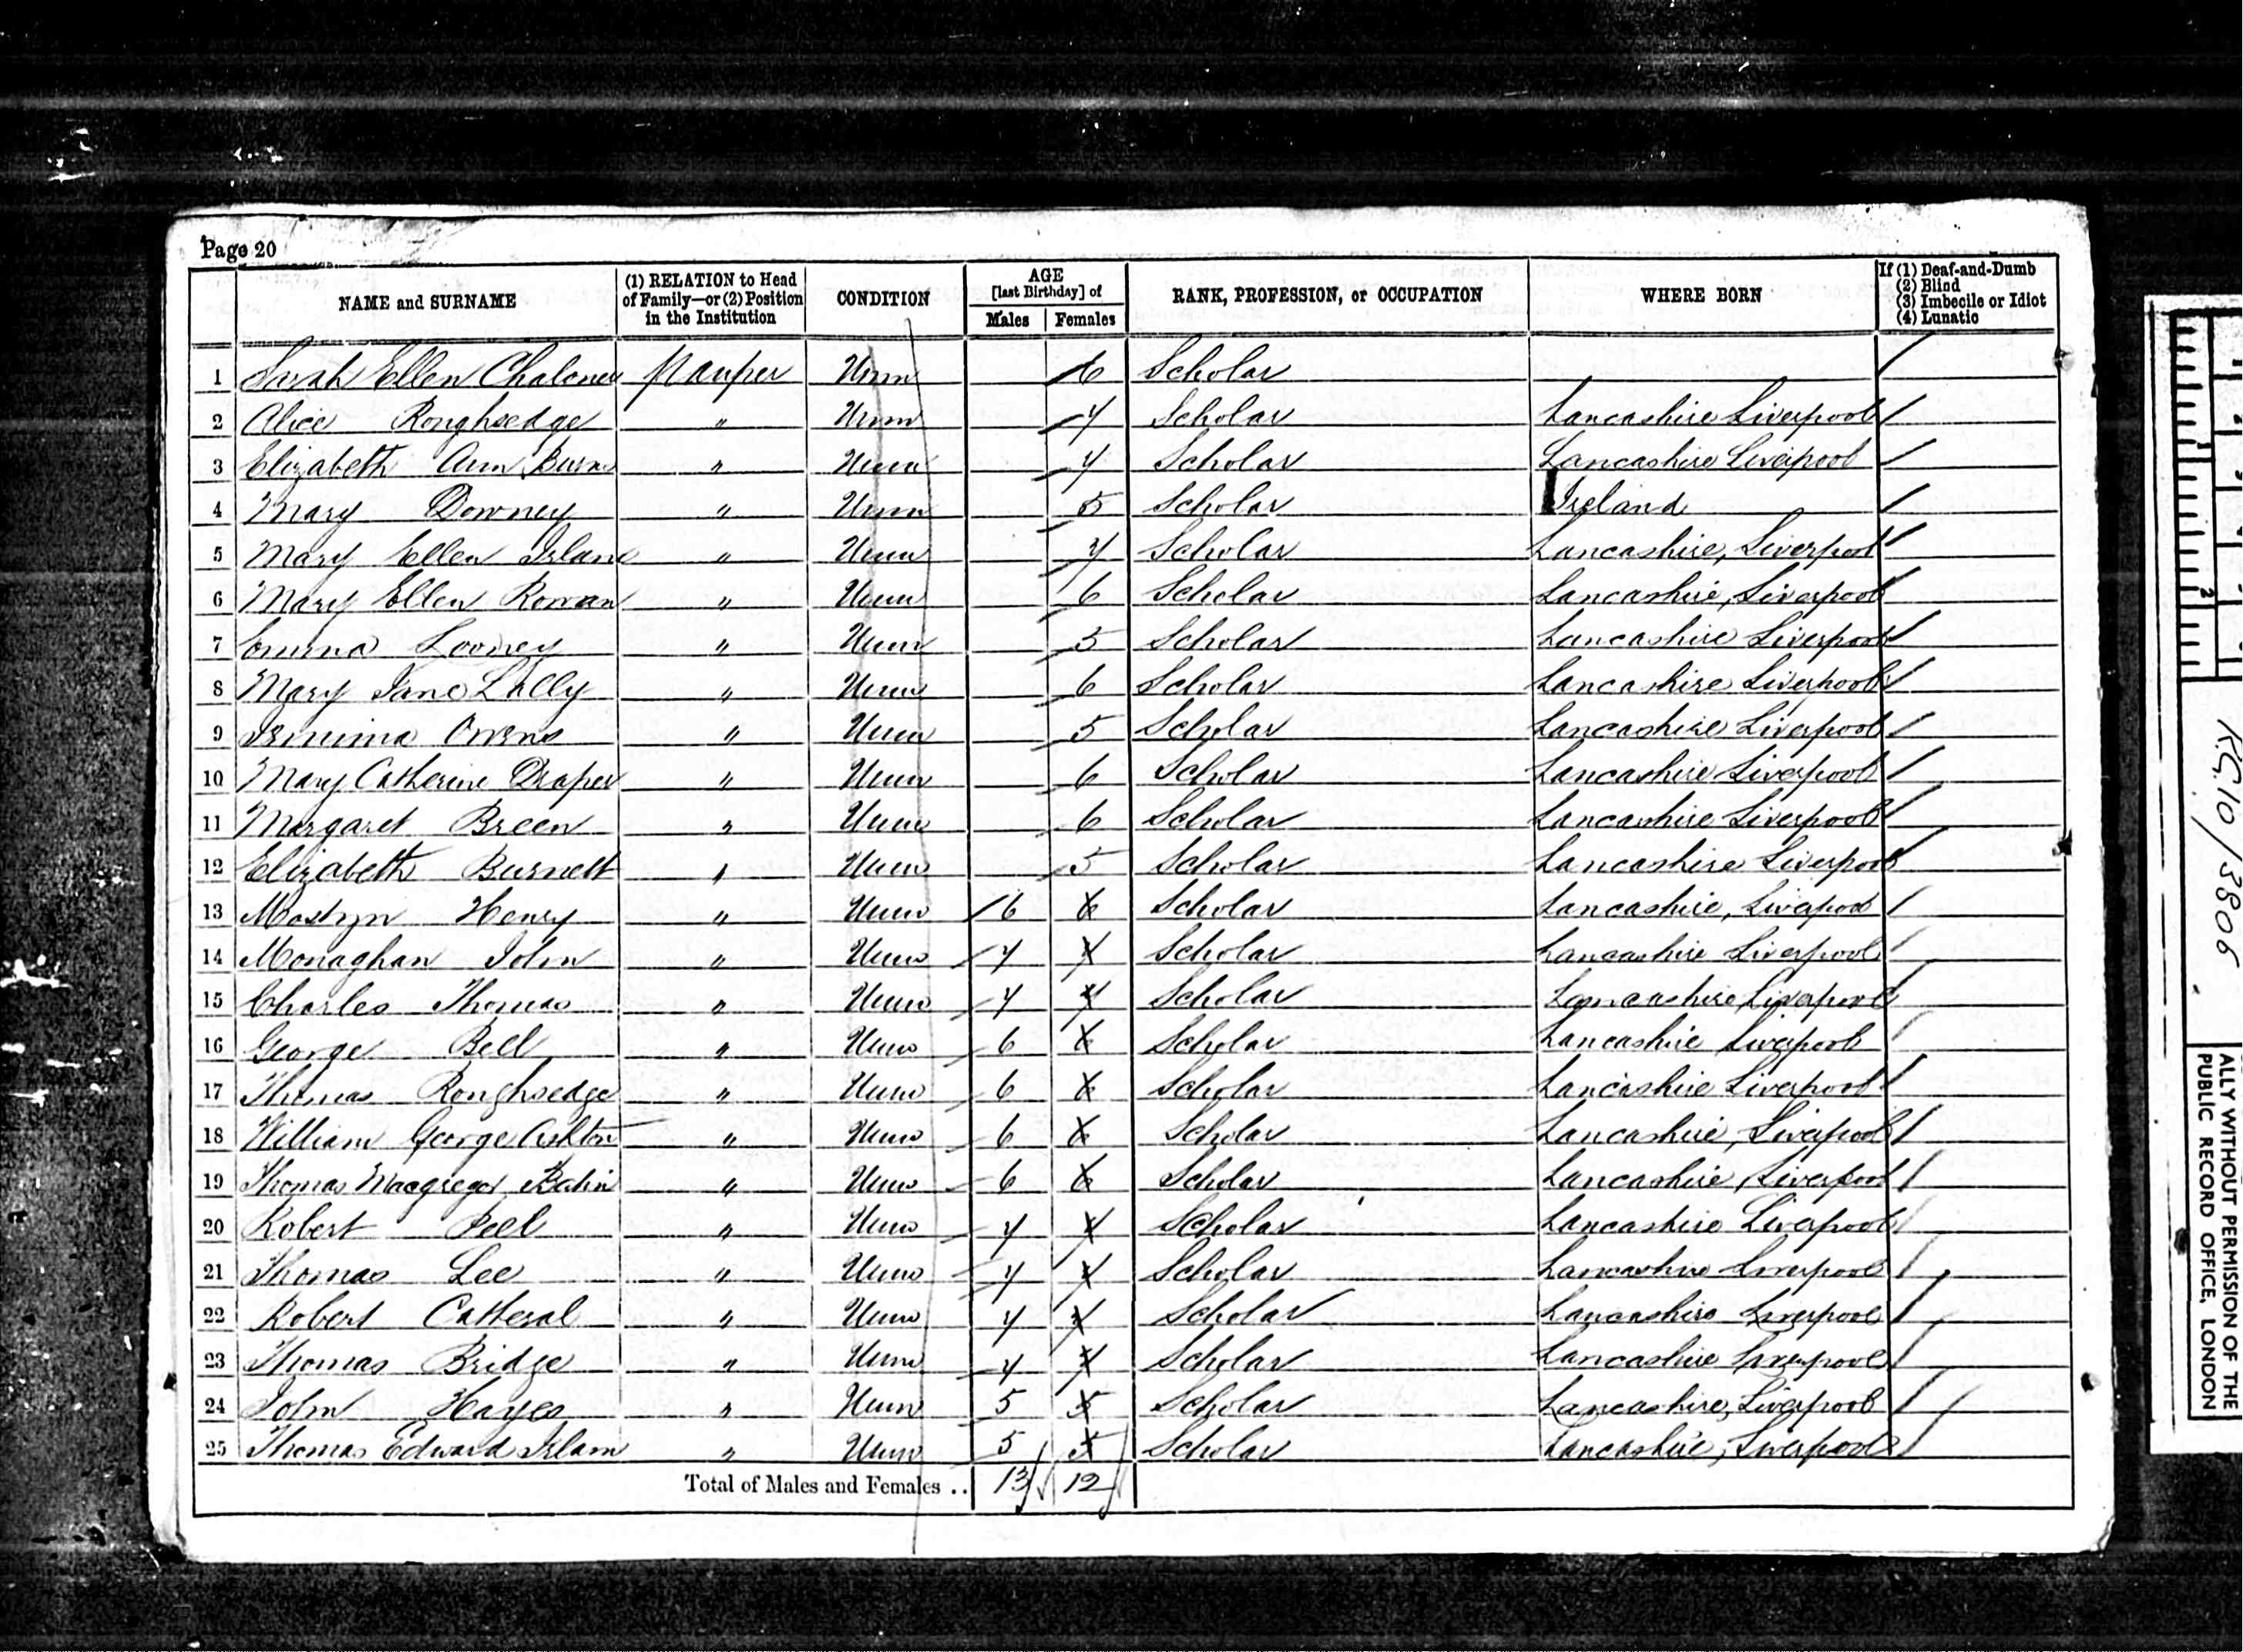 Page 20
NAME and SURNAME (1) RELATION to Head of Family—or (2) Position in the Institution CONDITION AGE [last Birthday] of Males Females RANK, PROFESSION, or OCCUPATION WHERE BORN If (1) Deaf-and-Dumb (2) Blind (3) Imbecile or Idiot (4) Lunatic
1 Sarah Ellen Chaloner Pauper Unm 6 Scholar
2 Alice Roughsedge " Unm 7 Scholar Lancashire Liverpool
3 Elizabeth Ann Burns " Unm 7 Scholar Lancashire Liverpool
4 Mary Downey " Unm 5 Scholar Ireland
5 Mary Ellen Irlam " Unm 7 Scholar Lancashire, Liverpool
6 Mary Ellen Rowan " Unm 6 Scholar Lancashire, Liverpool
7 Emma Looney " Unm 5 Scholar Lancashire Liverpool
8 Mary Jane Lally " Unm 6 Scholar Lancashire Liverpool
9 Jemima Owens " Unm 5 Scholar Lancashire Liverpool
10 Mary Catherine Draper " Unm 6 Scholar Lancashire Liverpool
11 Margaret Breen " Unm 6 Scholar Lancashire Liverpool
12 Elizabeth Burnett " Unm 5 Scholar Lancashire Liverpool
13 Mostyn Henry " Unm 6 6 Scholar Lancashire, Liverpool
14 Monaghan John " Unm 7 7 Scholar Lancashire Liverpool
15 Charles Thomas " Unm 7 7 Scholar Lancashire, Liverpool
16 George Bell " Unm 6 6 Scholar Lancashire Liverpool
17 Thomas Roughsedge " Unm 6 6 Scholar Lancashire Liverpool
18 William George Ashton " Unm 6 6 Scholar Lancashire, Liverpool
19 Thomas Macgregor " Unm 6 6 Scholar Lancashire, Liverpool
20 Robert Peel " Unm 7 7 Scholar Lancashire Liverpool
21 Thomas Lee " Unm 7 7 Scholar Lancashire Liverpool
22 Robert Catteral " Unm 7 7 Scholar Lancashire Liverpool
23 Thomas Bridge " Unm 7 7 Scholar Lancashire Liverpool
24 John Hayes " Unm 5 5 Scholar Lancashire, Liverpool
25 Thomas Edward Irlam " Unm 5 5 Scholar Lancashire, Liverpool
Total of Males and Females .. 13 12
R.G.10/3806
ALLY WITHOUT PERMISSION OF THE
PUBLIC RECORD OFFICE, LONDON